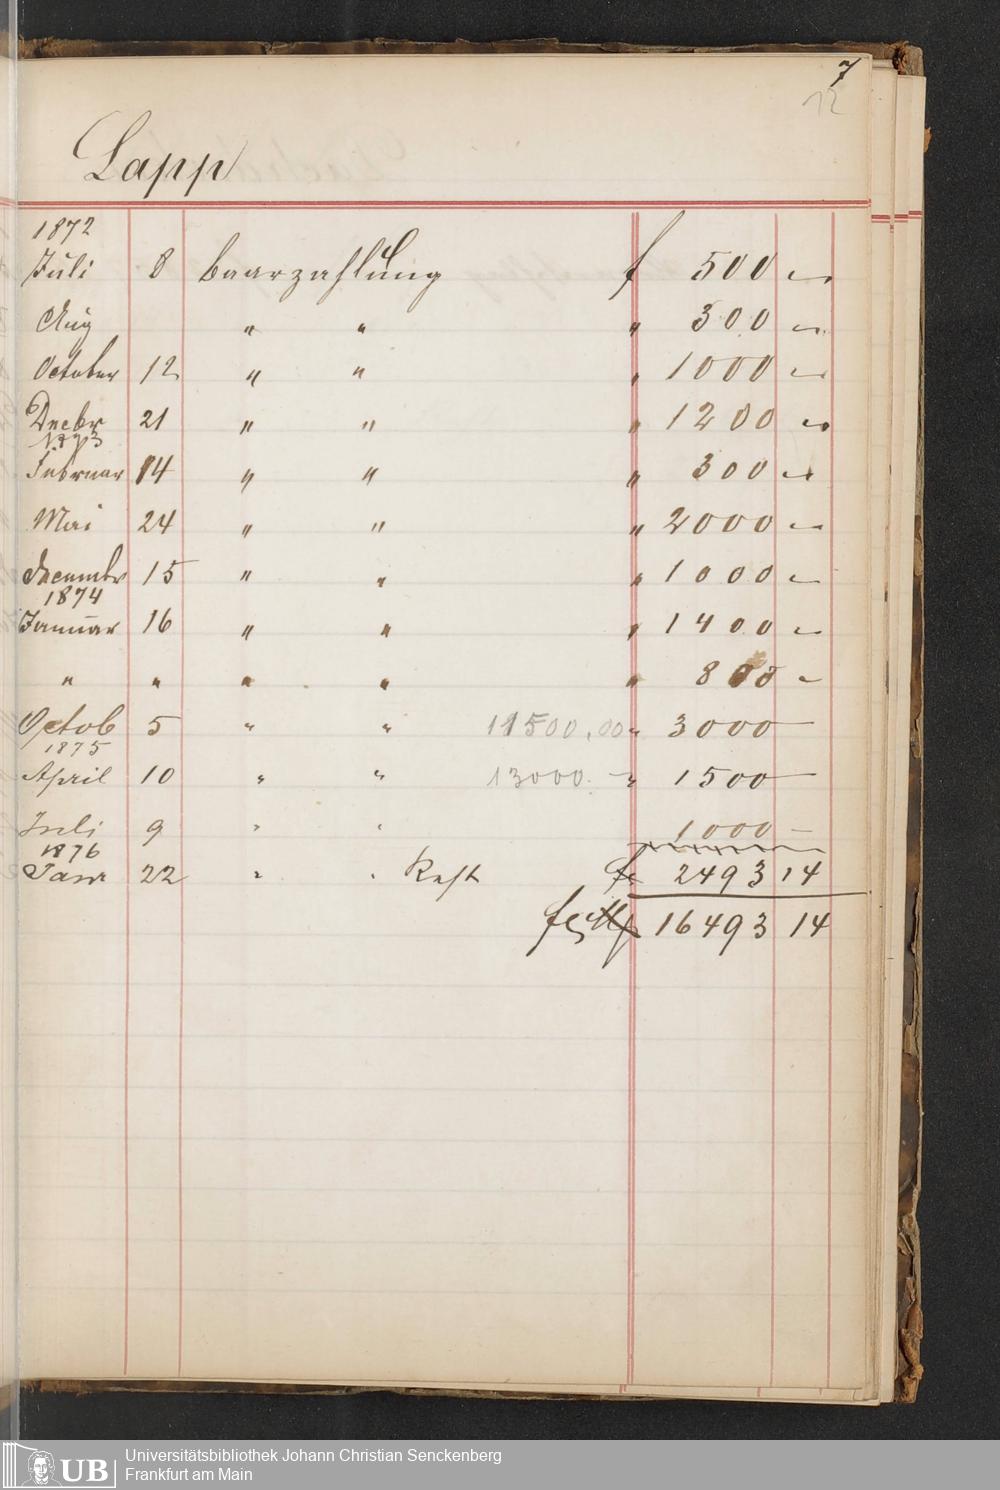 7
12
Lapp
1872
Juli 8 Baarzahlung f 500 —
Aug " " " 300 —
October 12 " " " 1000 —
Decbr 21 " " " 1200 —
1873
Februar 14 " " " 300 —
Mai 24 " " " 2000 —
Decembr 15 " " " 1000 —
1874
Januar 16 " " " 1400 —
" " " " " 800 —
Octob 5 " " 11500.00 " 3000 —
1875
April 10 " " 13000. — " 1500 —
Juli 9 " " 1000 —
1876
Janr 22 " " Rest 2493 14
16493 14
UB Universitätsbibliothek Johann Christian Senckenberg
Frankfurt am Main